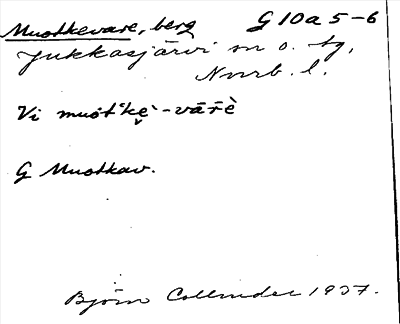 Muotkevare, berg G 10a 5-6
Jukkasjärvi sn o. tg,
Norrb. l.
Vi muot'ke̮-vārè
G Muotkav.
Björn Collinder 1937.